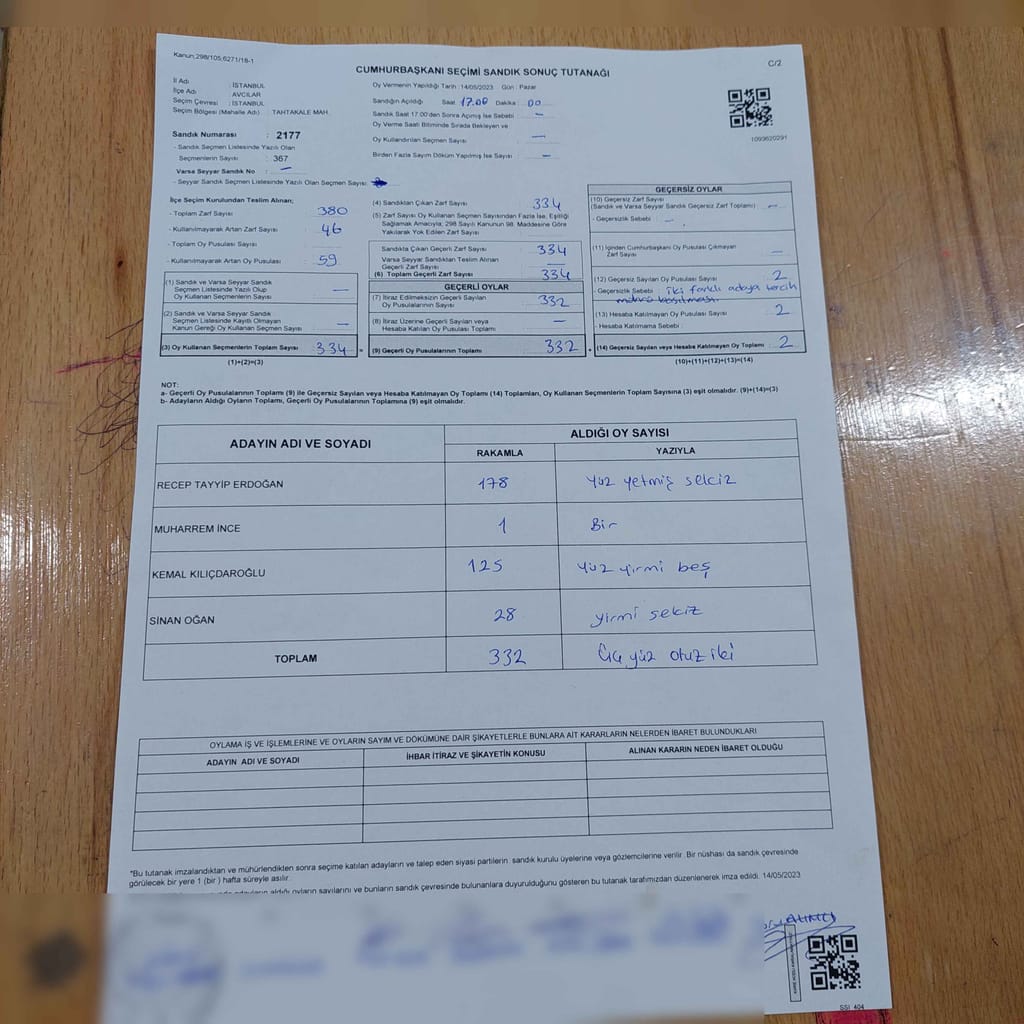 Kanun;298/105;6271/18-1
C/2
CUMHURBAŞKANI SEÇİMİ SANDIK SONUÇ TUTANAĞI
İl Adı : İSTANBUL
İlçe Adı : AVCILAR
Seçim Çevresi : İSTANBUL
Seçim Bölgesi (Mahalle Adı) : TAHTAKALE MAH.
Sandık Numarası : 2177
- Sandık Seçmen Listesinde Yazılı Olan
Seçmenlerin Sayısı : 367
Varsa Seyyar Sandık No : —
- Seyyar Sandık Seçmen Listesinde Yazılı Olan Seçmen Sayısı :
Oy Vermenin Yapıldığı Tarih : 14/05/2023 Gün : Pazar
Sandığın Açıldığı Saat 17.00 Dakika : 00
Sandık Saat 17.00'den Sonra Açımış İse Sebebi —
Oy Verme Saati Bitiminde Sırada Bekleyen ve
Oy Kullandırılan Seçmen Sayısı —
Birden Fazla Sayım Döküm Yapılmış İse Sayısı —
1093620291
İlçe Seçim Kurulundan Teslim Alınan;
- Toplam Zarf Sayısı 380
- Kullanılmayarak Artan Zarf Sayısı 46
- Toplam Oy Pusulası Sayısı
- Kullanılmayarak Artan Oy Pusulası 59
(1) Sandık ve Varsa Seyyar Sandık
Seçmen Listesinde Yazılı Olup
Oy Kullanan Seçmenlerin Sayısı —
(2) Sandık ve Varsa Seyyar Sandık
Seçmen Listesinde Kayıtlı Olmayan
Kanun Gereği Oy Kullanan Seçmen Sayısı —
(3) Oy Kullanan Seçmenlerin Toplam Sayısı 334 =
(1)+(2)=(3)
(4) Sandıktan Çıkan Zarf Sayısı 334
(5) Zarf Sayısı Oy Kullanan Seçmen Sayısından Fazla İse, Eşitliği
Sağlamak Amacıyla; 298 Sayılı Kanunun 98. Maddesine Göre
Yakılarak Yok Edilen Zarf Sayısı
Sandıkta Çıkan Geçerli Zarf Sayısı 334
Varsa Seyyar Sandıktan Teslim Alınan
Geçerli Zarf Sayısı —
(6) Toplam Geçerli Zarf Sayısı 334
GEÇERLİ OYLAR
(7) İtiraz Edilmeksizin Geçerli Sayılan
Oy Pusulalarının Sayısı 332
(8) İtiraz Üzerine Geçerli Sayılan veya
Hesaba Katılan Oy Pusulası Toplamı —
(9) Geçerli Oy Pusulalarının Toplamı 332
GEÇERSİZ OYLAR
(10) Geçersiz Zarf Sayısı
(Sandık ve Varsa Seyyar Sandık Geçersiz Zarf Toplamı) —
- Geçersizlik Sebebi : —
(11) İçinden Cumhurbaşkanı Oy Pusulası Çıkmayan
Zarf Sayısı —
(12) Geçersiz Sayılan Oy Pusulası Sayısı 2
- Geçersizlik Sebebi : iki farklı adaya tercih
mührü basılması.
(13) Hesaba Katılmayan Oy Pusulası Sayısı 2
- Hesaba Katılmama Sebebi :
(14) Geçersiz Sayılan veya Hesaba Katılmayan Oy Toplamı 2
(10)+(11)+(12)+(13)=(14)
NOT:
a- Geçerli Oy Pusulalarının Toplamı (9) ile Geçersiz Sayılan veya Hesaba Katılmayan Oy Toplamı (14) Toplamları, Oy Kullanan Seçmenlerin Toplam Sayısına (3) eşit olmalıdır. (9)+(14)=(3)
b- Adayların Aldığı Oyların Toplamı, Geçerli Oy Pusulalarının Toplamına (9) eşit olmalıdır.
ADAYIN ADI VE SOYADI
ALDIĞI OY SAYISI
RAKAMLA YAZIYLA
RECEP TAYYİP ERDOĞAN 178 Yüz yetmiş sekiz
MUHARREM İNCE 1 Bir
KEMAL KILIÇDAROĞLU 125 Yüz yirmi beş
SİNAN OĞAN 28 yirmi sekiz
TOPLAM 332 Üç yüz otuz iki
OYLAMA İŞ VE İŞLEMLERİNE VE OYLARIN SAYIM VE DÖKÜMÜNE DAİR ŞİKAYETLERLE BUNLARA AİT KARARLARIN NELERDEN İBARET BULUNDUKLARI
ADAYIN ADI VE SOYADI İHBAR İTİRAZ VE ŞİKAYETİN KONUSU ALINAN KARARIN NEDEN İBARET OLDUĞU
*Bu tutanak imzalandıktan ve mühürlendikten sonra seçime katılan adayların ve talep eden siyasi partilerin sandık kurulu üyelerine veya gözlemcilerine verilir. Bir nüshası da sandık çevresinde
görülecek bir yere 1 (bir ) hafta süreyle asılır.
adayların aldığı oyların sayılarını ve bunların sandık çevresinde bulunanlara duyurulduğunu gösteren bu tutanak tarafımızdan düzenlenerek imza edildi. 14/05/2023
SSI 404